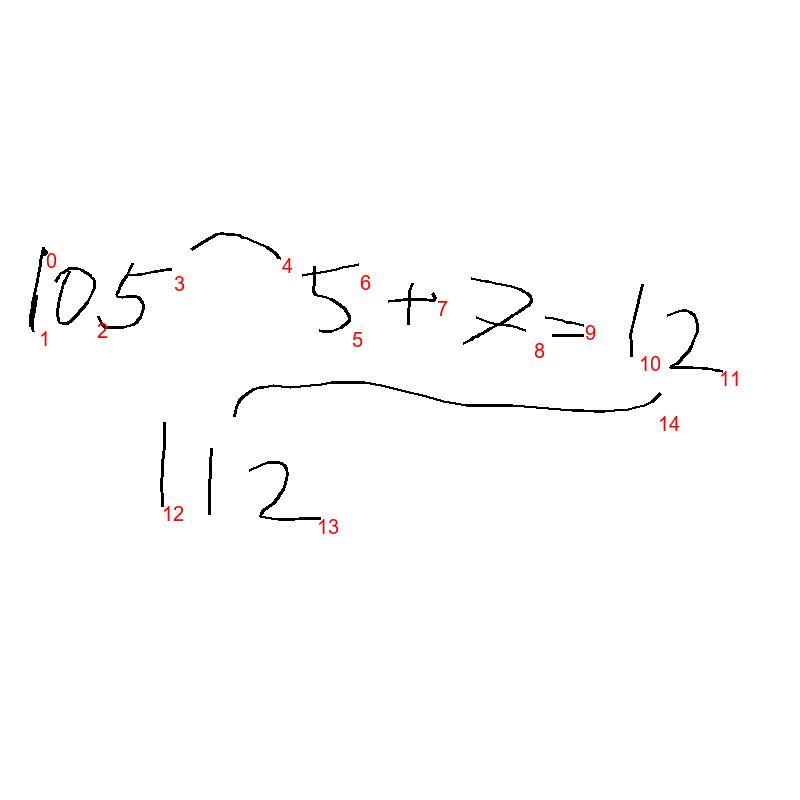 105 5+7=12
112
0 1 2 3 4 5 6 7 8 9 10 11 12 13 14